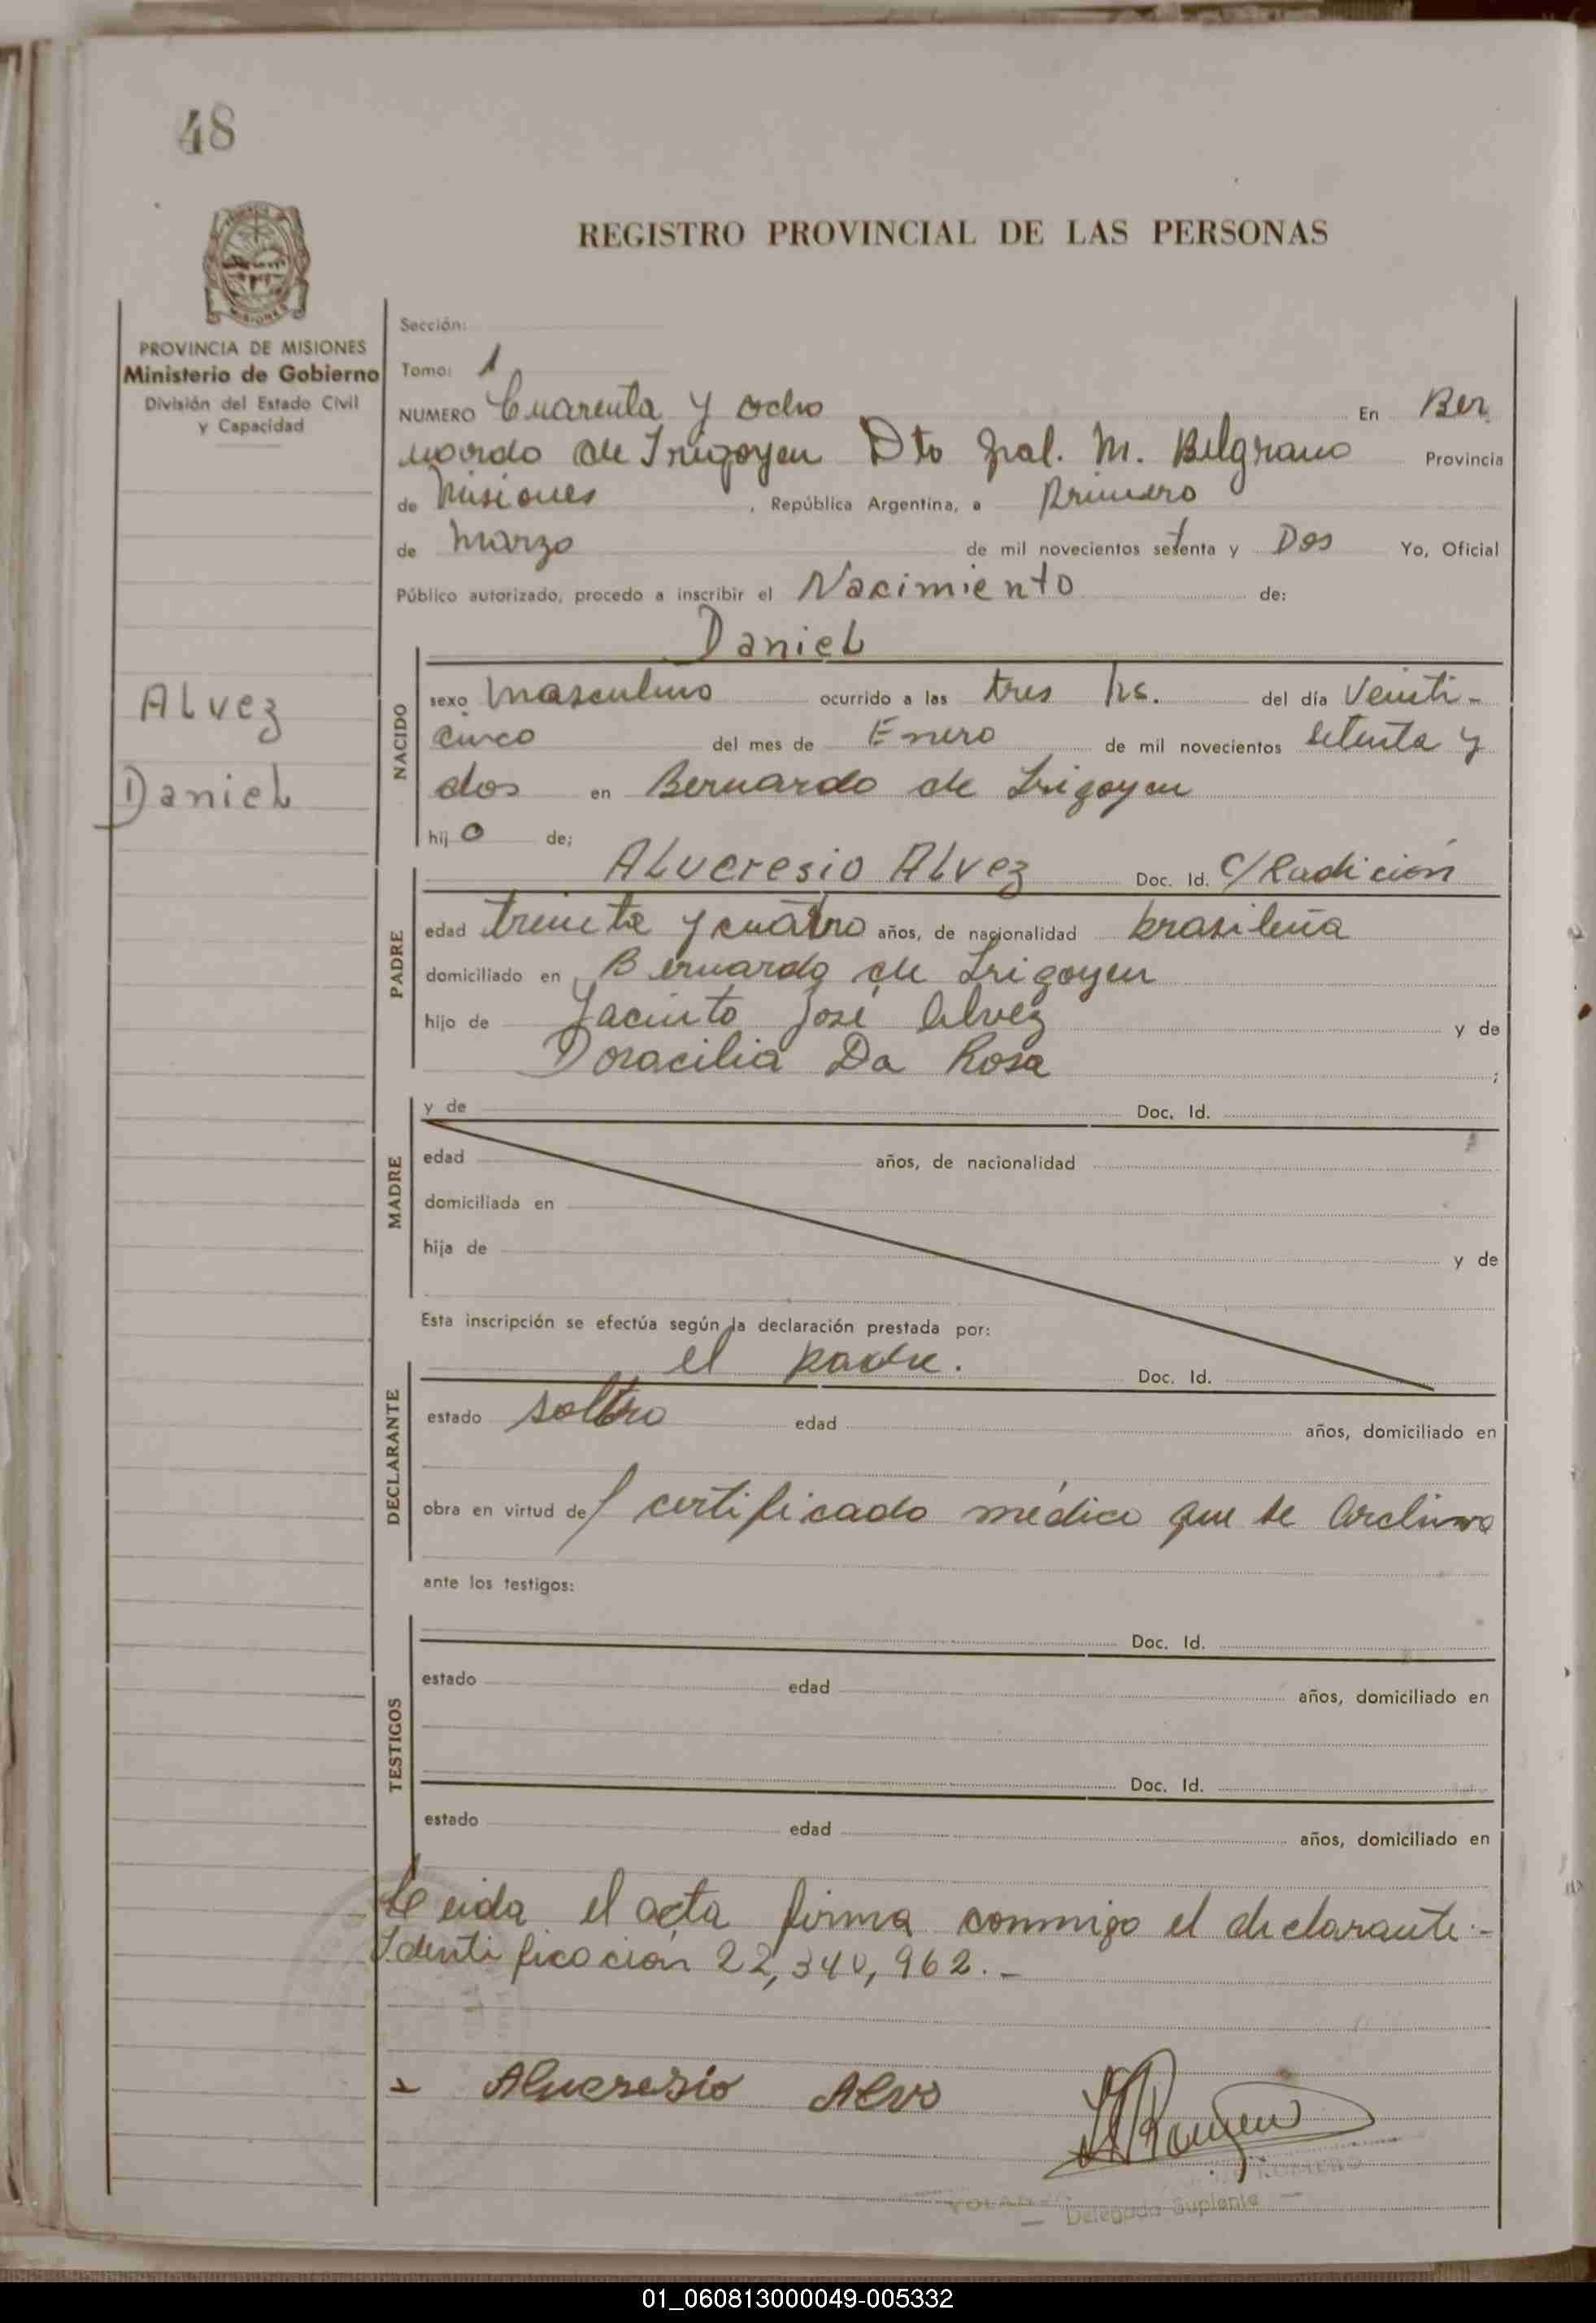 48
REGISTRO PROVINCIAL DE LAS PERSONAS
MISIONES
PROVINCIA DE MISIONES
Ministerio de Gobierno
División del Estado Civil
y Capacidad
Alvez
Daniel
Sección:
Tomo: 1
NUMERO Cuarenta y ocho En Ber
nardo de Irigoyen Dto Gral. M. Belgrano Provincia
de Misiones, República Argentina, a Primero
de Marzo de mil novecientos setenta y Dos Yo, Oficial
Público autorizado, procedo a inscribir el Nacimiento de:
Daniel
NACIDO
sexo Masculino ocurrido a las tres hs. del día Veinti-
cinco del mes de Enero de mil novecientos setenta y
dos en Bernardo de Irigoyen
hijo de;
Alveresio Alvez Doc. Id. C/Radición
PADRE
edad treinta y cuatro años, de nacionalidad brasileña
domiciliado en Bernardo de Irigoyen
hijo de Jacinto José Alvez y de
Doracilia Da Rosa ;
MADRE
y de Doc. Id.
edad años, de nacionalidad
domiciliada en
hija de y de
Esta inscripción se efectúa según la declaración prestada por:
el padre. Doc. Id.
DECLARANTE
estado soltero edad años, domiciliado en
obra en virtud de certificado médico que se archiva
ante los testigos:
TESTIGOS
Doc. Id.
estado edad años, domiciliado en
Doc. Id.
estado edad años, domiciliado en
Leida el acta firma conmigo el declarante.-
Identificación 22,340,962.-
Alveresio Alves
ROMERO
Delegada Suplente
01_060813000049-005332